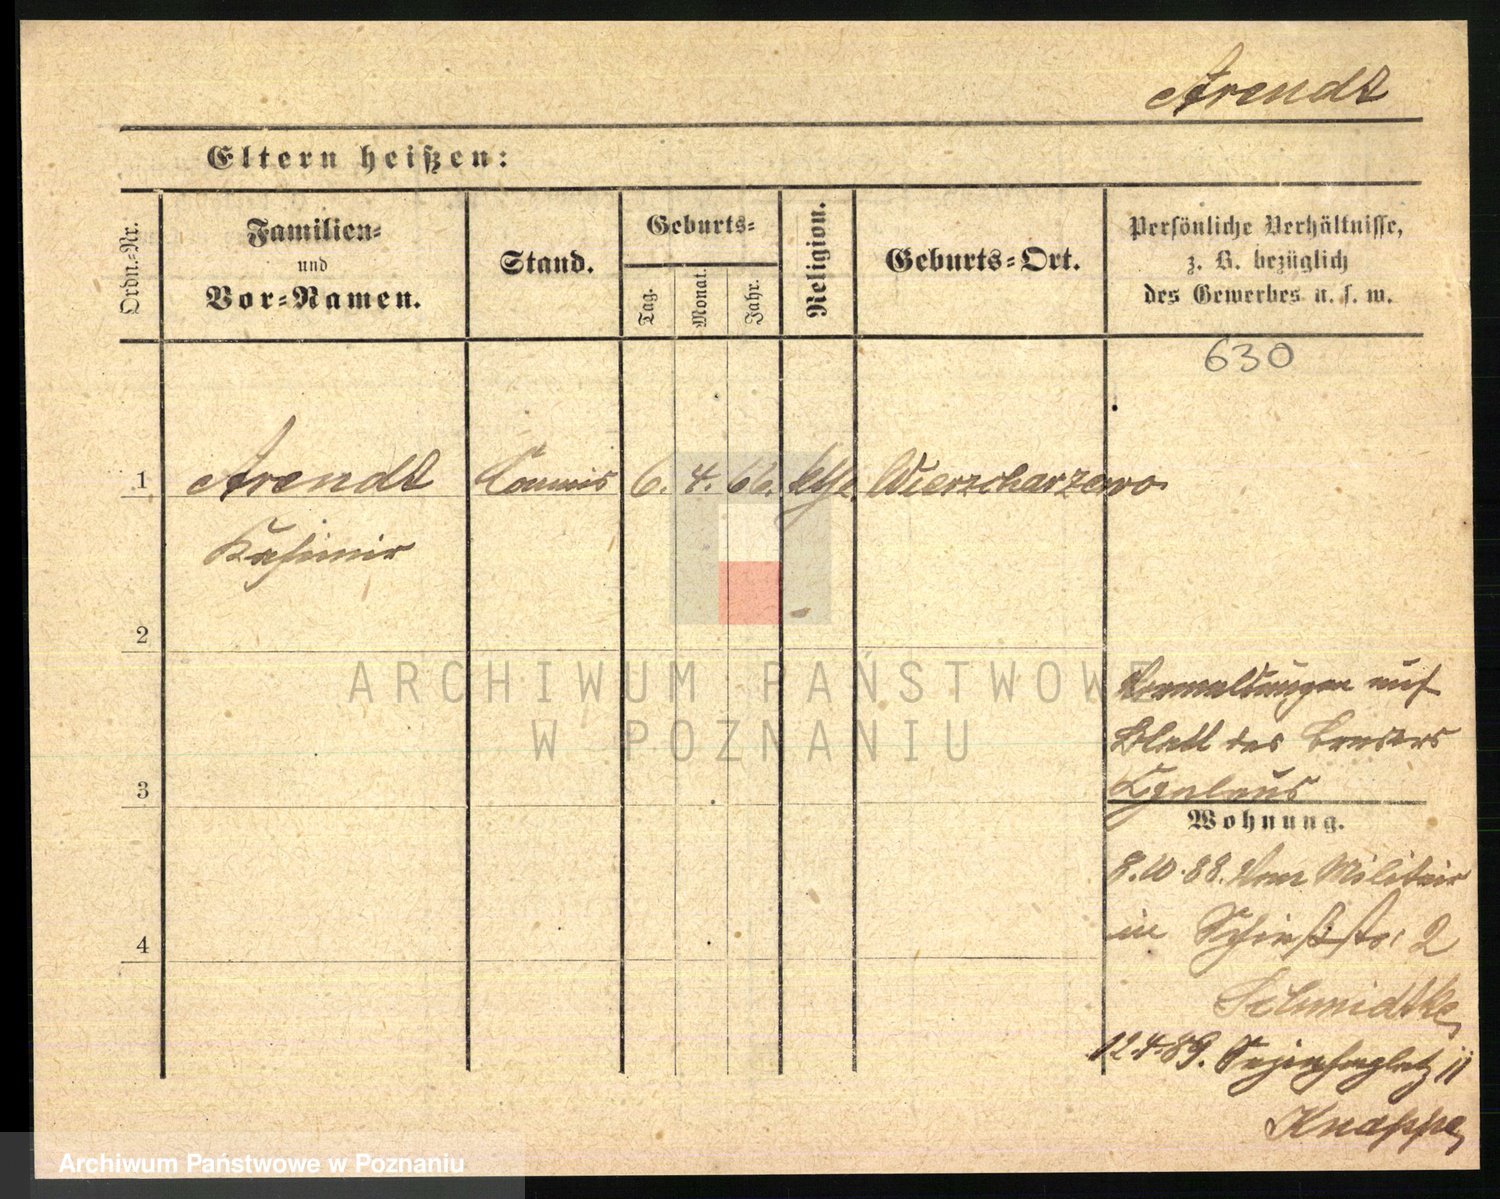 Arendt
Eltern heißen:
Ordn.-Nr.
Familien-
und
Vor-Namen.
Stand.
Geburts-
Tag.
Monat.
Jahr.
Religion.
Geburts-Ort.
Persönliche Verhältnisse,
z. B. bezüglich
des Gewerbes u. s. w.
630
1
Arendt
Commis
6.
4.
66.
Wierzcharzewo
Kasimir
2
3
4
auf
Blatt des
Wohnung.
8.10.88. Vom Militair
in Schießstr. 2
Schmidtke
12.4.89. 11
Knappe
ARCHIWUM PAŃSTWOWE
W POZNANIU
Archiwum Państwowe w Poznaniu